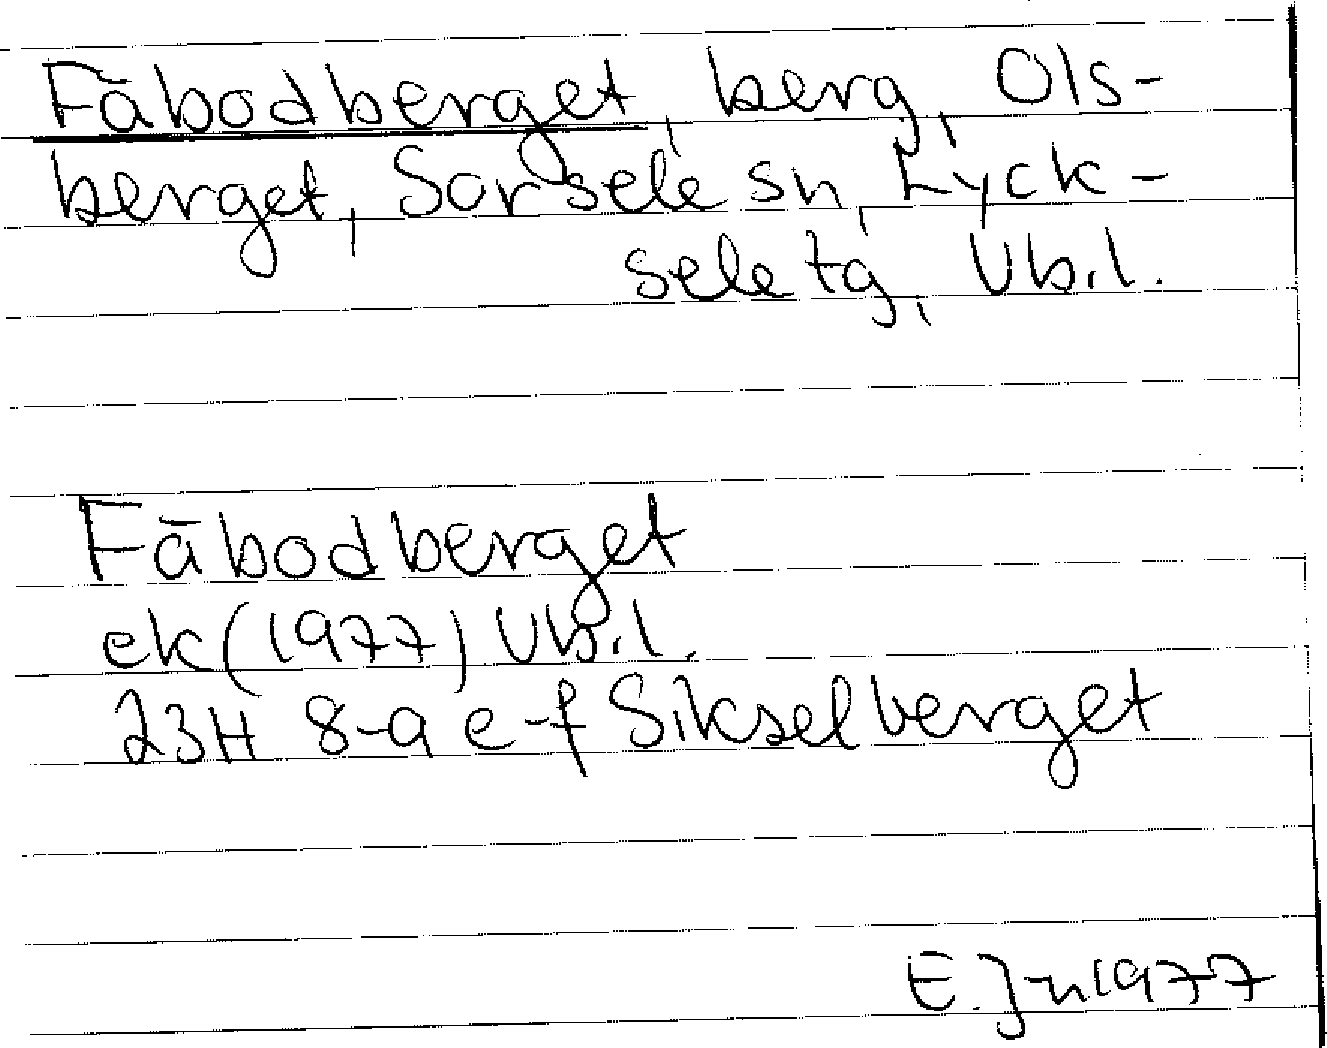 Fäbodberget, berg, Ols-
berget, Sorsele sn, Lyck-
sele tg, Vb.l.
Fäbodberget
ek (1977) Vb.l.
23H 8-9 e-f Sikselberget
E. J-n 1977